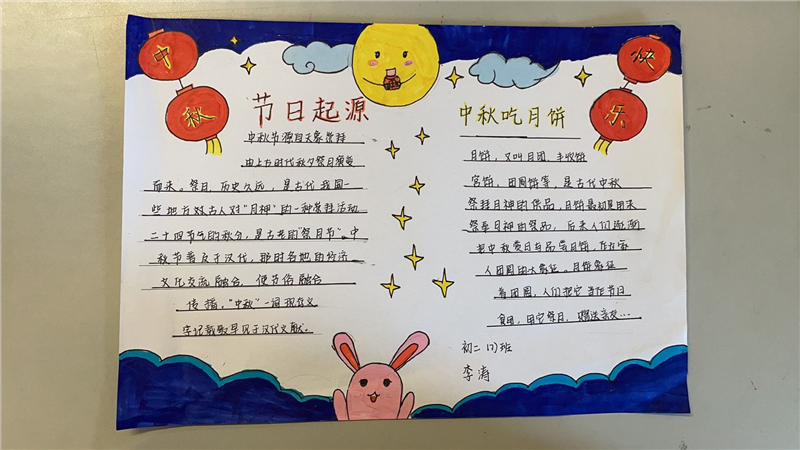 中秋
快乐
节日起源
中秋节源自天象崇拜
由上古时代秋夕祭月演变
而来。祭月，历史久远，是古代我国一
些地方对古人对“月神”的一种崇拜活动
二十四节气的秋分，是古老的“祭月节”。中
秋节普及于汉代，那时各地的经济
文化交流融合，使节俗融合
传播，“中秋”一词现存文
字记载最早见于汉代文献。
中秋吃月饼
月饼，又叫月团、丰收饼
宫饼、团圆饼等，是古代中秋
祭拜月神的供品，月饼最初是用来
祭奉月神的祭品，后来人们逐渐
把中秋赏月与品尝月饼，作为家
人团圆的大象征。月饼象征
着团圆，人们把它当作节日
食品，用它祭月、赠送亲友…
初二（1）班
李涛